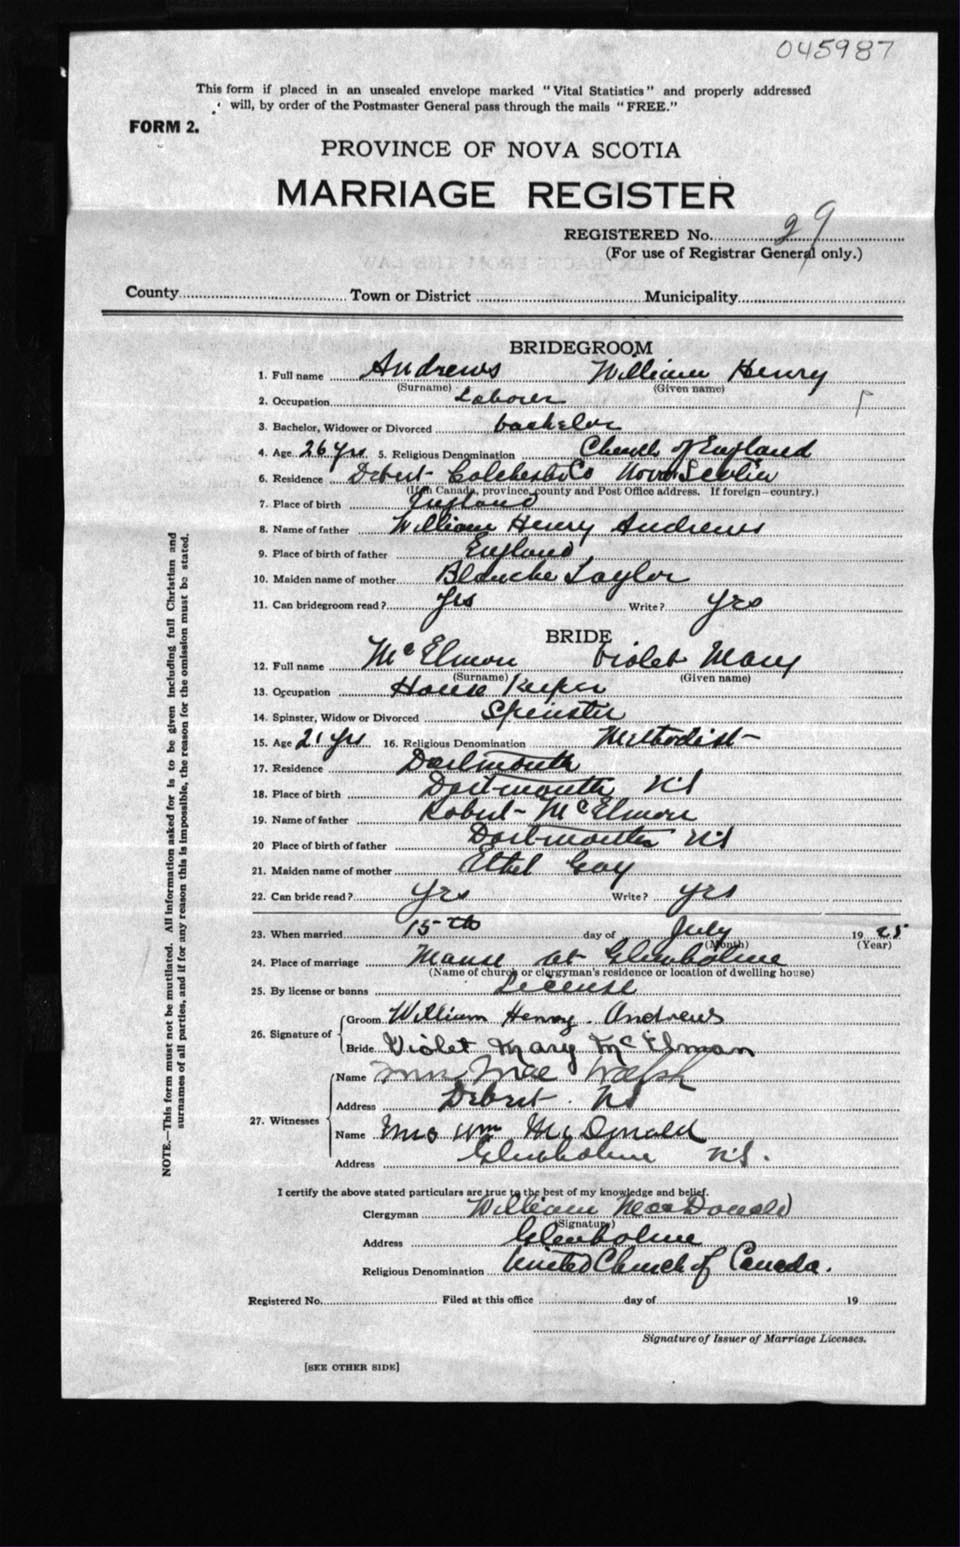 045987
This form if placed in an unsealed envelope marked "Vital Statistics" and properly addressed
will, by order of the Postmaster General pass through the mails "FREE."
FORM 2.
PROVINCE OF NOVA SCOTIA
MARRIAGE REGISTER
REGISTERED No. 29
(For use of Registrar General only.)
County Town or District Municipality
BRIDEGROOM
1. Full name Andrews William Henry
(Surname) (Given name)
2. Occupation Laborer
3. Bachelor, Widower or Divorced bachelor
4. Age 26 yrs. 5. Religious Denomination Church of England
6. Residence Debert Colchester Co Nova Scotia
(If in Canada, province, county and Post Office address. If foreign—country.)
7. Place of birth England
8. Name of father William Henry Andrews
9. Place of birth of father England
10. Maiden name of mother Blanche Taylor
11. Can bridegroom read? yes Write? yes
BRIDE
12. Full name McElmon Violet Mary
(Surname) (Given name)
13. Occupation House Keeper
14. Spinster, Widow or Divorced Spinster
15. Age 21 yrs 16. Religious Denomination Methodist
17. Residence Dartmouth
18. Place of birth Dartmouth NS
19. Name of father Robert McElmon
20 Place of birth of father Dartmouth NS
21. Maiden name of mother Ethel Gay
22. Can bride read? yes Write? yes
23. When married 15th day of July 1925
(Month) (Year)
24. Place of marriage Manse at Glenholme
(Name of church or clergyman's residence or location of dwelling house)
25. By license or banns License
26. Signature of Groom William Henry Andrews
Bride Violet Mary McElman
27. Witnesses Name Mrs Mae Walsh
Address Debert NS
Name Mrs Wm McDonald
Address Glenholme N.S.
I certify the above stated particulars are true to the best of my knowledge and belief.
Clergyman William MacDonald
(Signature)
Address Glenholme
Religious Denomination United Church of Canada.
Registered No. Filed at this office day of 19
Signature of Issuer of Marriage Licenses.
[SEE OTHER SIDE]
NOTE.—This form must not be mutilated. All information asked for is to be given including full Christian and
surnames of all parties, and if for any reason this is impossible, the reason for the omission must be stated.